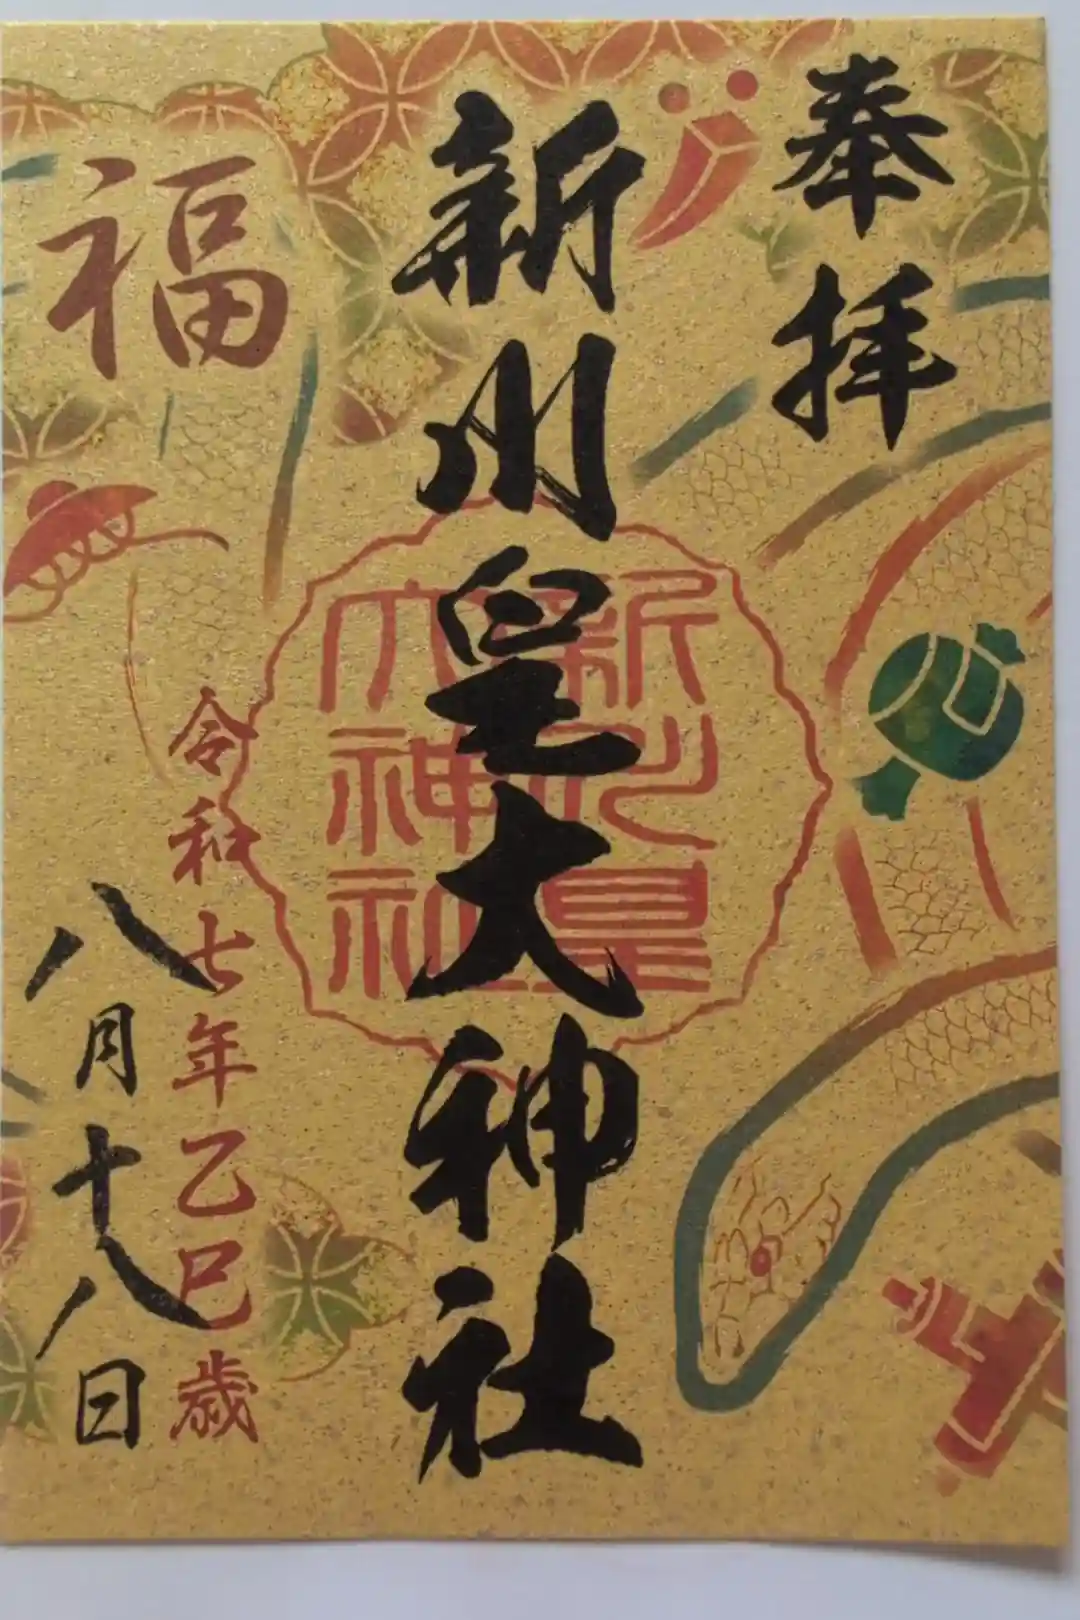 奉拝
新川皇大神社
新川皇
大神社
福
令和七年乙巳歳
八月十八日